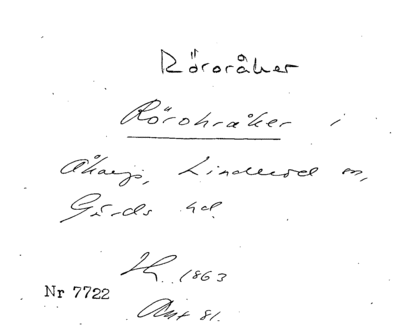 Röroråker
Rörohråker i
Åkarp, Linderöd sn,
Gärds hd.
1863
Nr 7722
Ant 81.